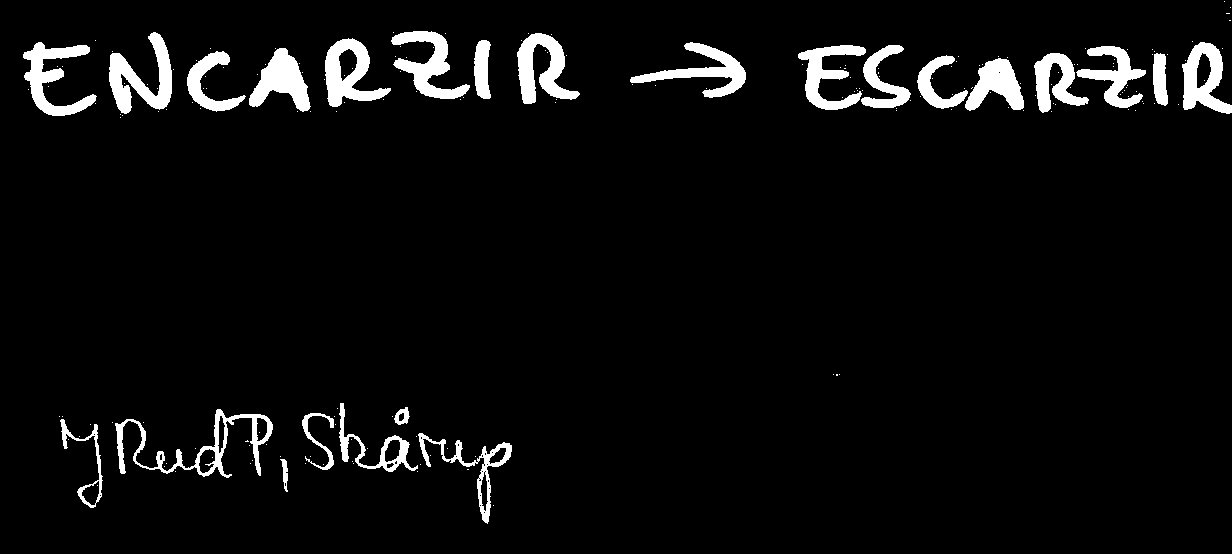 ENCARZIR → ESCARZIR
JRudP, Skårup